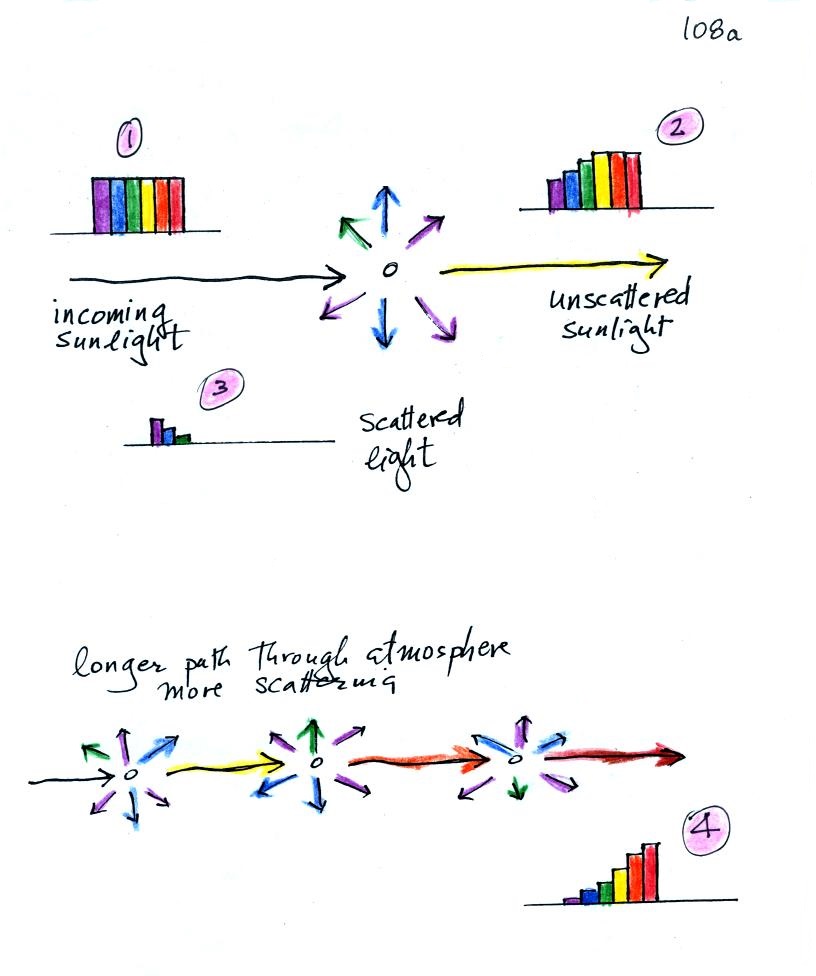 108a
1
2
incoming
sunlight
unscattered
sunlight
3
scattered
light
longer path through atmosphere
more scattering
4